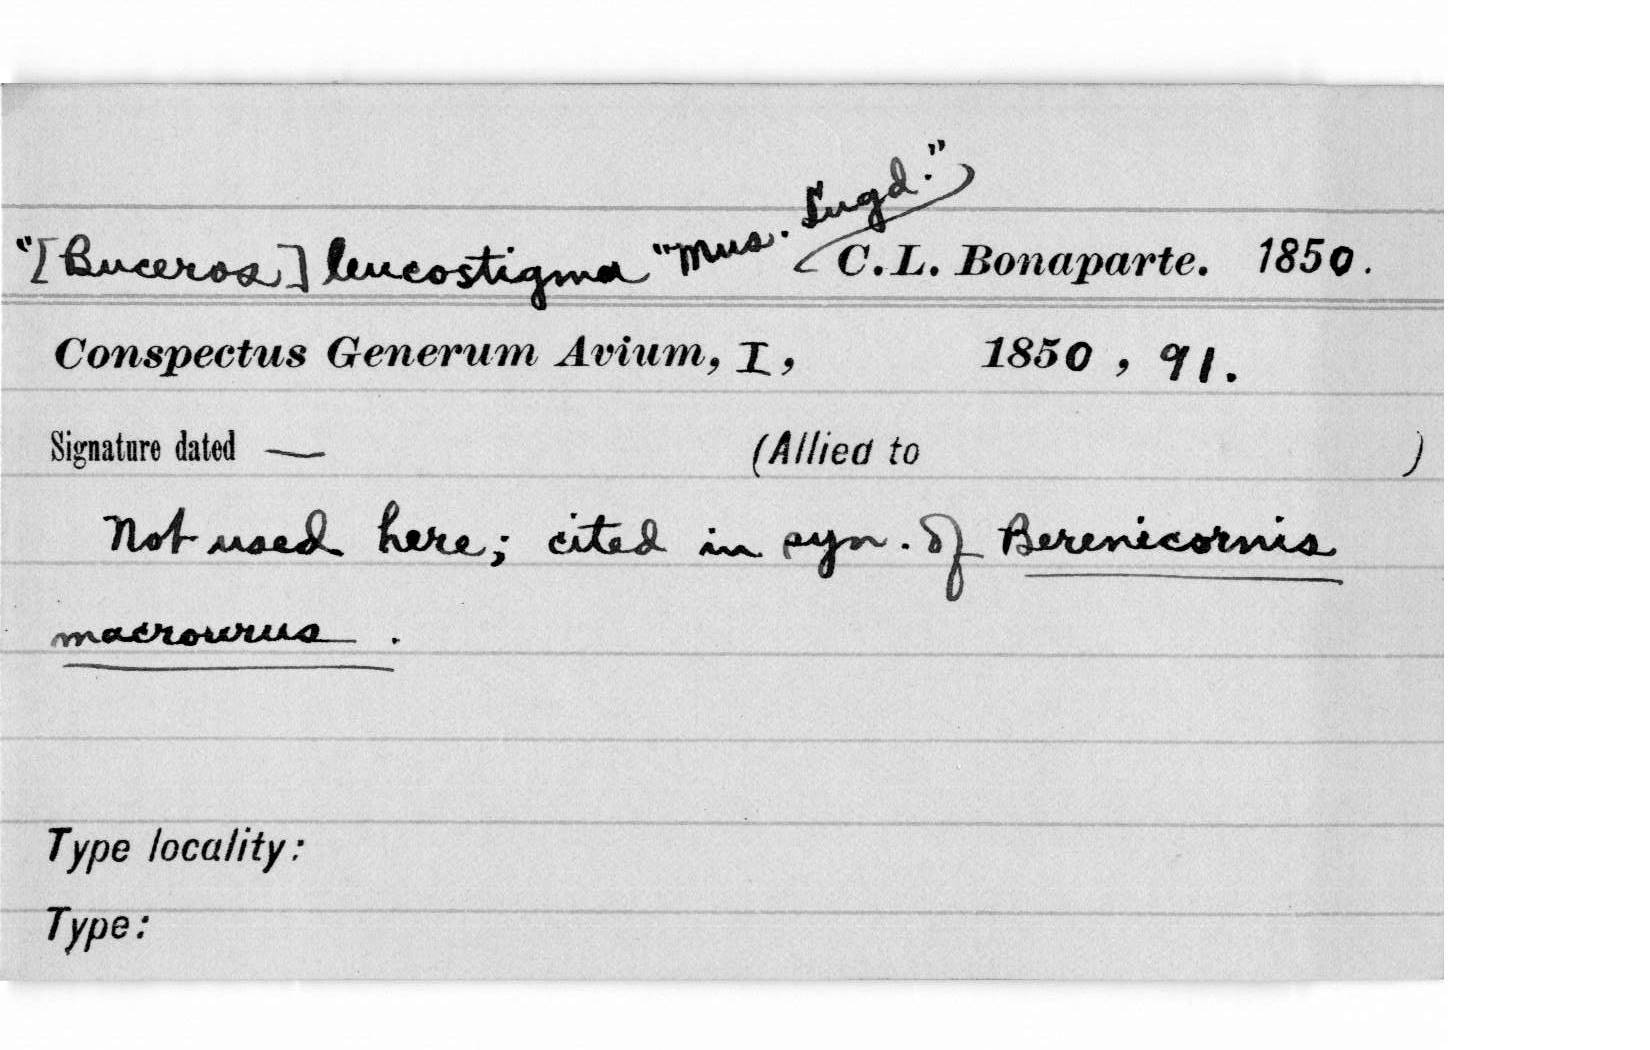 "[Buceros] leucostigma "Mus. Lugd." C.L. Bonaparte. 1850.
Conspectus Generum Avium, I, 1850, 91.
Signature dated — (Allied to )
Not used here; cited in syn. of Berenicornis
macrourus.
Type locality:
Type: